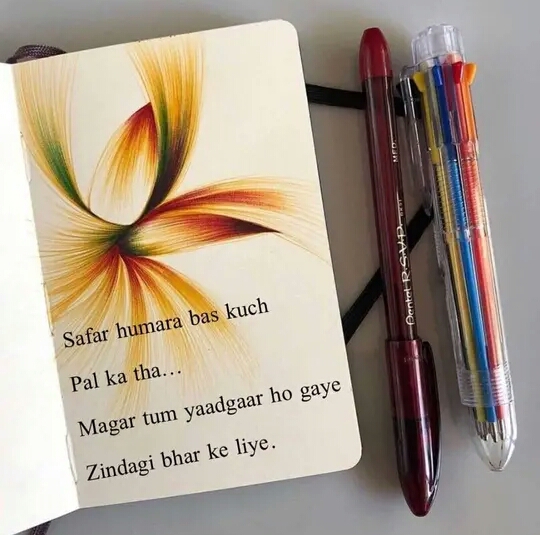 Safar humara bas kuch
Pal ka tha...
Magar tum yaadgaar ho gaye
Zindagi bhar ke liye.
Pentel R.S.V.P.
MED